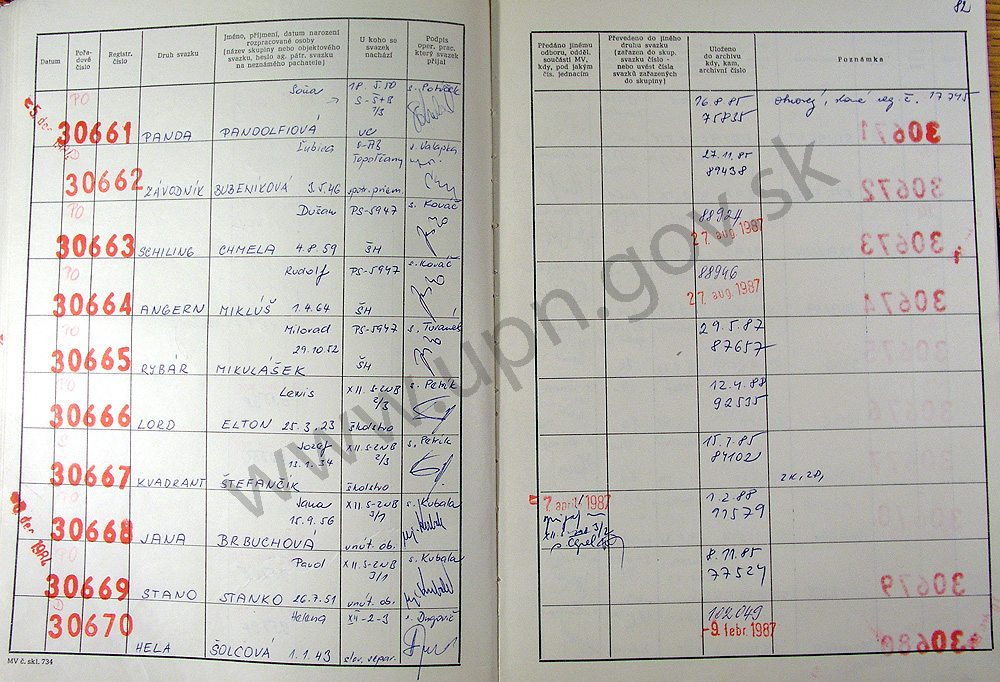 82
Datum
Pořadové číslo
Registr. číslo
Druh svazku
Jméno, příjmení, datum narození rozpracované osoby (název skupiny nebo objektového svazku, heslo ag. pátr. svazku na neznámého pachatele)
U koho se svazek nachází
Podpis oper. prac. který svazek přijal
Předáno jinému odboru, odděl. součásti MV, kdy, pod jakým čís. jednacím
Převedeno do jiného druhu svazku (zařazen do skup. svazku číslo - nebo uvést čísla svazků zařazených do skupiny)
Uloženo do archivu kdy, kam, archivní číslo
Poznámka
PO
Soňa 18.5.50
30661 PANDA PANDOLFIOVÁ
16.8.85
75835
Ľubica Topoľčany s. Valapka
30662 ZÁVODNÍK BUBENÍKOVÁ 3.5.46
27.11.85
89438
PO
Dušan PS-5947 s. Kováč
30663 SCHILING CHMELA 4.8.59 ŠH
88924
27. aug. 1987
PO
Rudolf PS-5947 s. Kováč
30664 ANGERN MIKLÚŠ 1.4.64 ŠH
88946
27. aug. 1987
PO
Milorad PS-5947 s. Turanek
29.10.52
30665 RYBÁR MIKULÁŠEK ŠH
29.5.87
87657
Lewis XII. S-ZNB s. Petrík
2/3
30666 LORD ELTON 25.3.23 školstvo
12.4.88
92535
Jozef XII. S-ZNB s. Petrík
13.1.34 2/3
30667 KVADRANT ŠTEFANČIK školstvo
15.7.85
84102
Jana XII. S-ZNB s. Kubala
15.9.56 3/1
30668 JANA BRBUCHOVÁ vnút. ob.
7. april 1987
1.2.88
11579
Pavol XII. S-ZNB s. Kubala
3/1
30669 STANO STANKO 26.7.51 vnút. ob.
8.11.85
77524
Helena XII-2-3
30670 HELA ŠOLCOVÁ 1.1.43
102049
-9. febr. 1987
MV č. skl. 734
www.upn.gov.sk